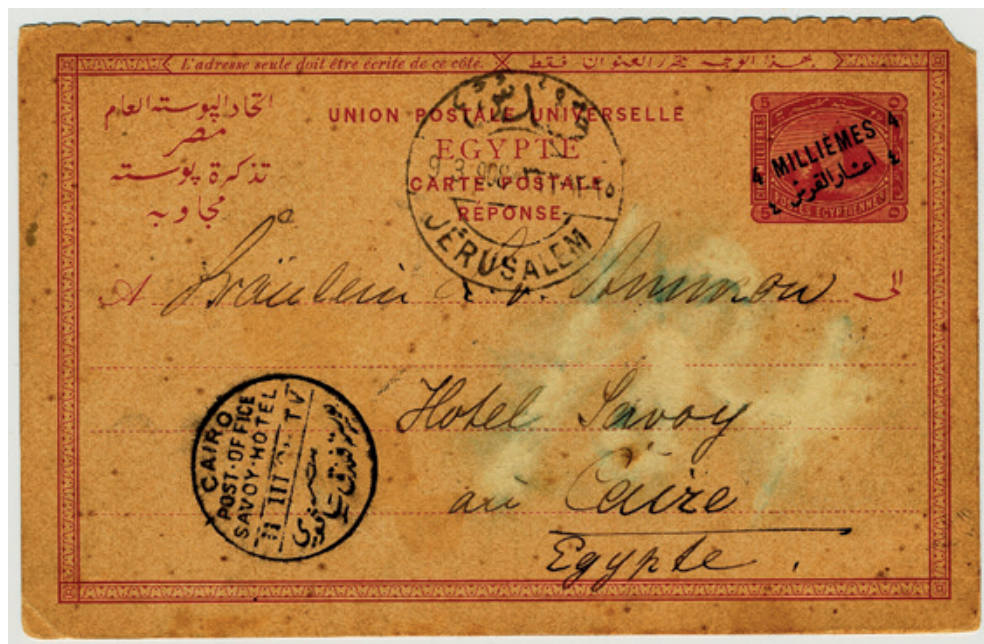 L'adresse seule doit être écrite de ce côté. بهذا الوجه يحرر العنوان فقط
اتحاد البوسته العام
مصر
تذكرة بوسته
مجاوبه
UNION POSTALE UNIVERSELLE
EGYPTE
CARTE POSTALE
RÉPONSE
5 5
4 MILLIÈMES 4
٤ اعشار القرش ٤
5
POSTES EGYPTIENNES
9 3
JÉRUSALEM
A Fräulein الى
Hotel Savoy
au Caire
Egypte.
CAIRO
POST-OFFICE
SAVOY-HOTEL
11 III TV